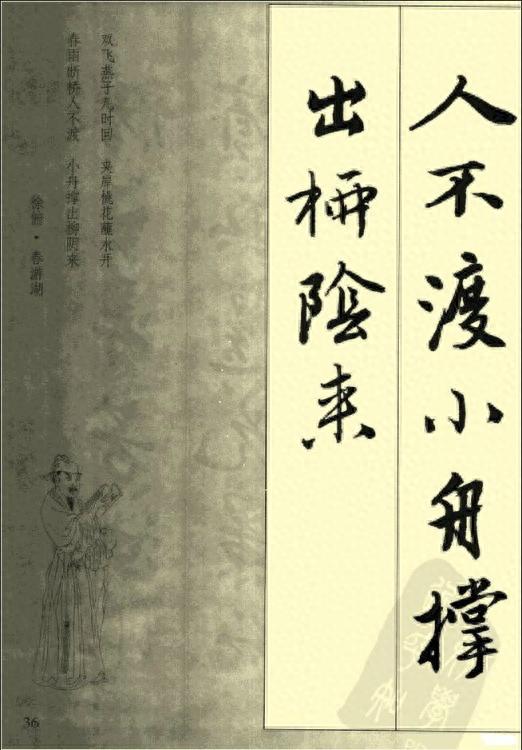 人不渡小舟撑
出柳陰来
双飞燕子几时回 夹岸桃花蘸水开
春雨断桥人不渡 小舟撑出柳阴来
徐俯·春游湖
36